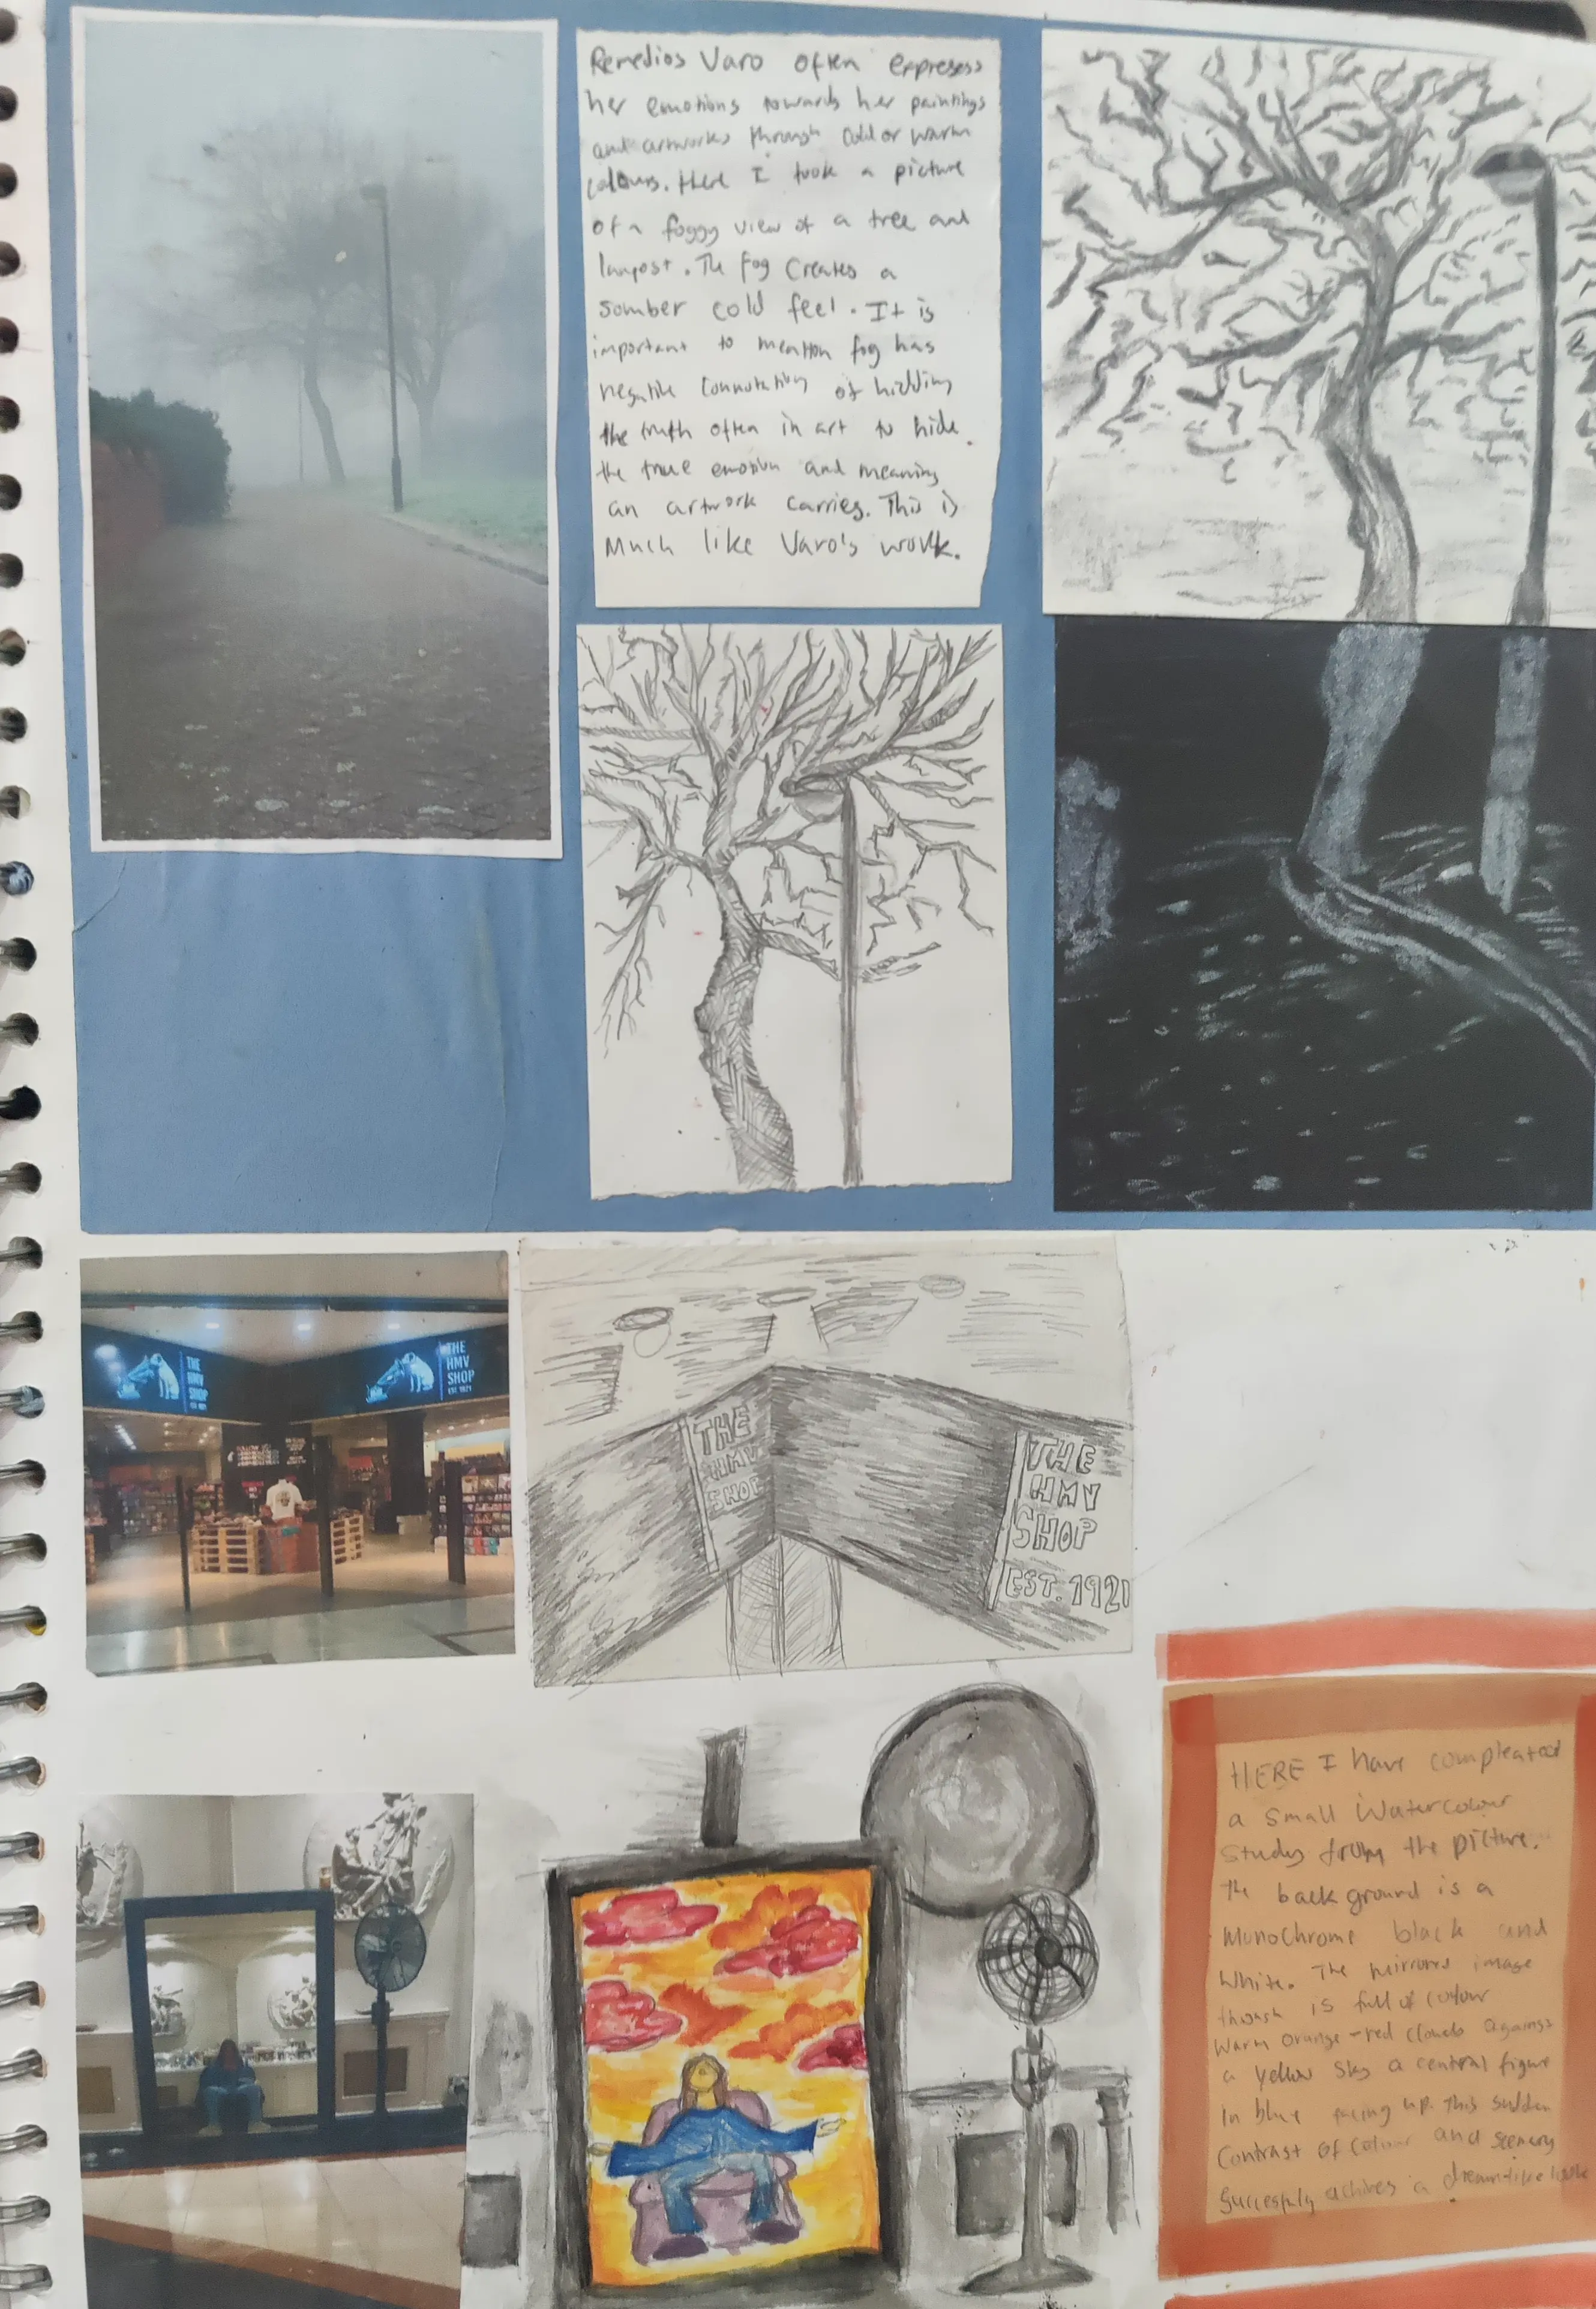 Remedios Varo often expresess
her emotions towards her paintings
and artworks through cold or warm
colours. Here I took a picture
of a foggy view of a tree and
lampost. The fog creates a
somber cold feel. It is
important to mention fog has
negative connotations of hidding
the truth often in art to hide
the true emotion and meaning
an artwork carries. This is
Much like Varo's work.
THE
HMV
SHOP
EST. 1921
THE
HMV
SHOP
EST. 1921
THE
HMV
SHOP
THE
HMV
SHOP
EST. 1921
HERE I have compleated
a small Watercolour
study from the picture.
the background is a
Monochrome black and
White. The mirrors image
though is full of colour
Warm orange-red clouds against
a yellow sky a central figure
in blue facing up. this sudden
contrast of colour and scenery
succesfuly achives a dream-like look